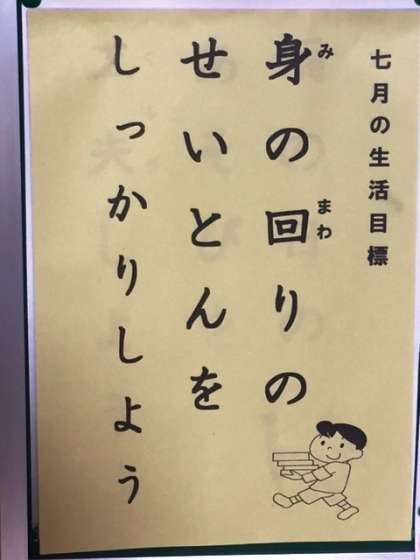 七月の生活目標
身の回りの
み
まわ
せいとんを
しっかりしよう